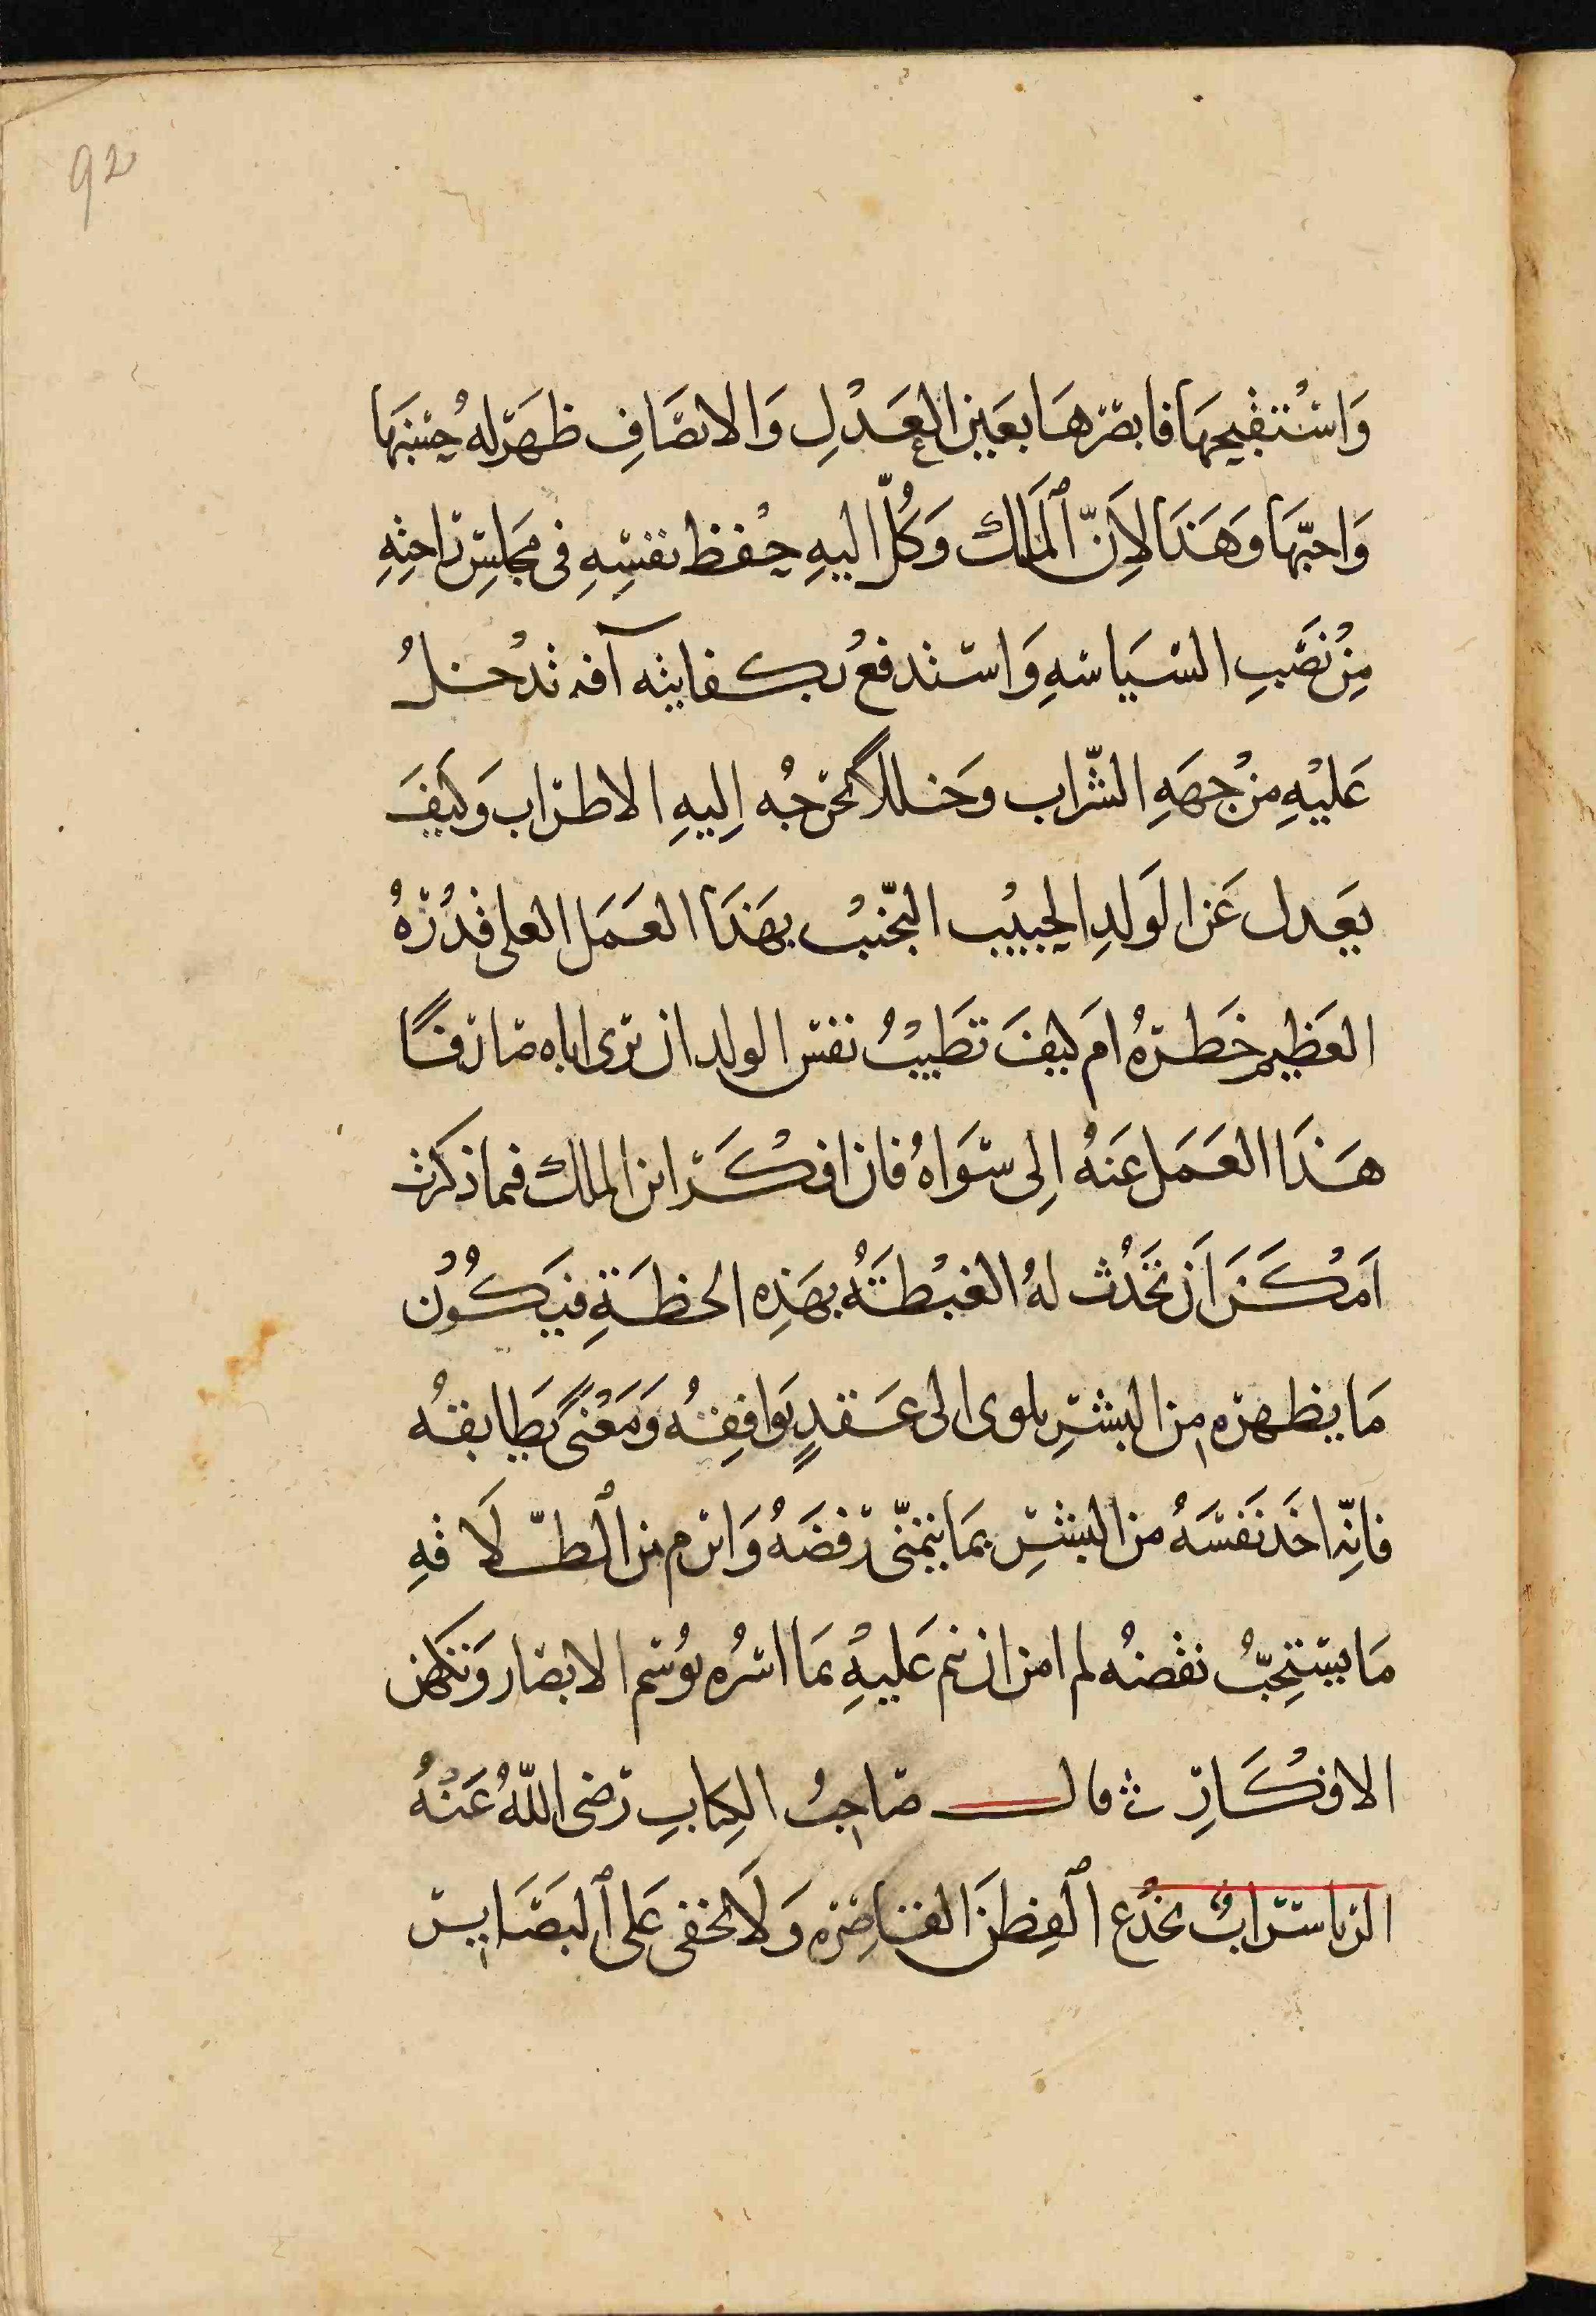 92
وَاسْتقبحهَا فابصَرهَا بعَين العَدْلِ وَالانصَافِ ظهَرله حُسْنهَا
وَاحبّهَا وَهَذَا لاَنّ اَلمَلك وَكَّل اليهِ حفْظ نفسِهِ فى مجَلسِ رَاحتِهِ
مِنْ نصَبِ السّيَاسَهِ وَاستدفعُ بكفايته آفه تدْخلُ
عَليْهِ منْ جهَهِ الشّراب وَخللاً تحرّجُه اِليهِ الاطراب وَكيفَ
يعَدل عَن الوَلدِ الحبيْب النّجيْب بهَذَا العَمَل العلى قدْرُهُ
العَظيم خَطرُهُ امَ كيفَ تَطيْبُ نفس الولد ان يرى اباه صَارفًا
هَذَا العَمَل عَنهُ اِلى سوَاهُ فان افكَر ابن الملك فيما ذكرت
اَمْكَن اَن تحَدُث لهُ الغبْطَهُ بهَذِه الخطَةِ فيَكُوْن
مَا يظهره من البشرِ يلوى الى عَقدٍ يوَافِقهُ وَمَعْنىً يُطَابقهُ
فانّه اخَذ نَفسَهُ من البشرِ بمَا يتمنّى رَفضَهُ وَابرم من اَلطلاَقهِ
مَا يسْتحِبُّ نقضهُ لم امن ان ينم عَليْهِ بمَا اسَرُه توُسّم الابصَار وَتكهن
الافكَارِ ثم قال صَاحبُ الكِتابِ رَضى اللّهُ عَنْهُ
الريا سَرابٌ يخْدَع اَلفِطَن القاصِره وَلَا يخفى عَلى اَلبَصَاير